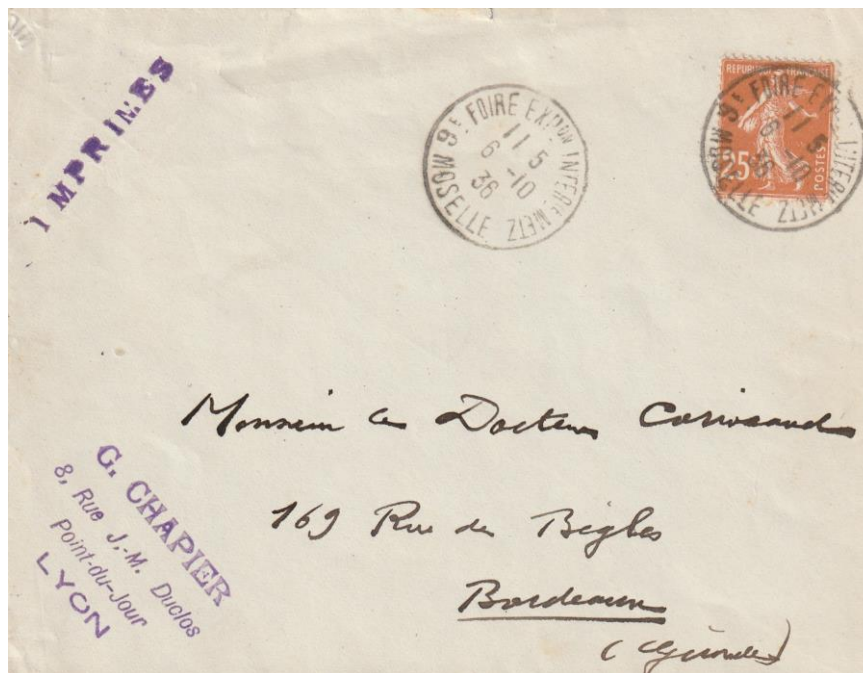 IMPRIMES
9E FOIRE EXPON INTERLE METZ
11 5
6 -10
36
MOSELLE
REPUBLIQUE FRANÇAISE
25
POSTES
9E FOIRE EXPON INTERLE METZ
11 5
6 -10
36
MOSELLE
Monsieur le Docteur
169 Rue de Bègles
Bordeaux
(Gironde)
G. CHAPIER
8, Rue J.-M. Duclos
Point-du-Jour
LYON